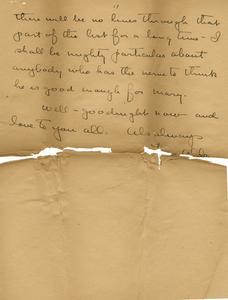 11
there will be no lines through that
part of the list for a long time - I
shall be mighty particular about
anybody who has the nerve to think
he is good enough for Mary.
Well - goodnight now and
love to you all. As always